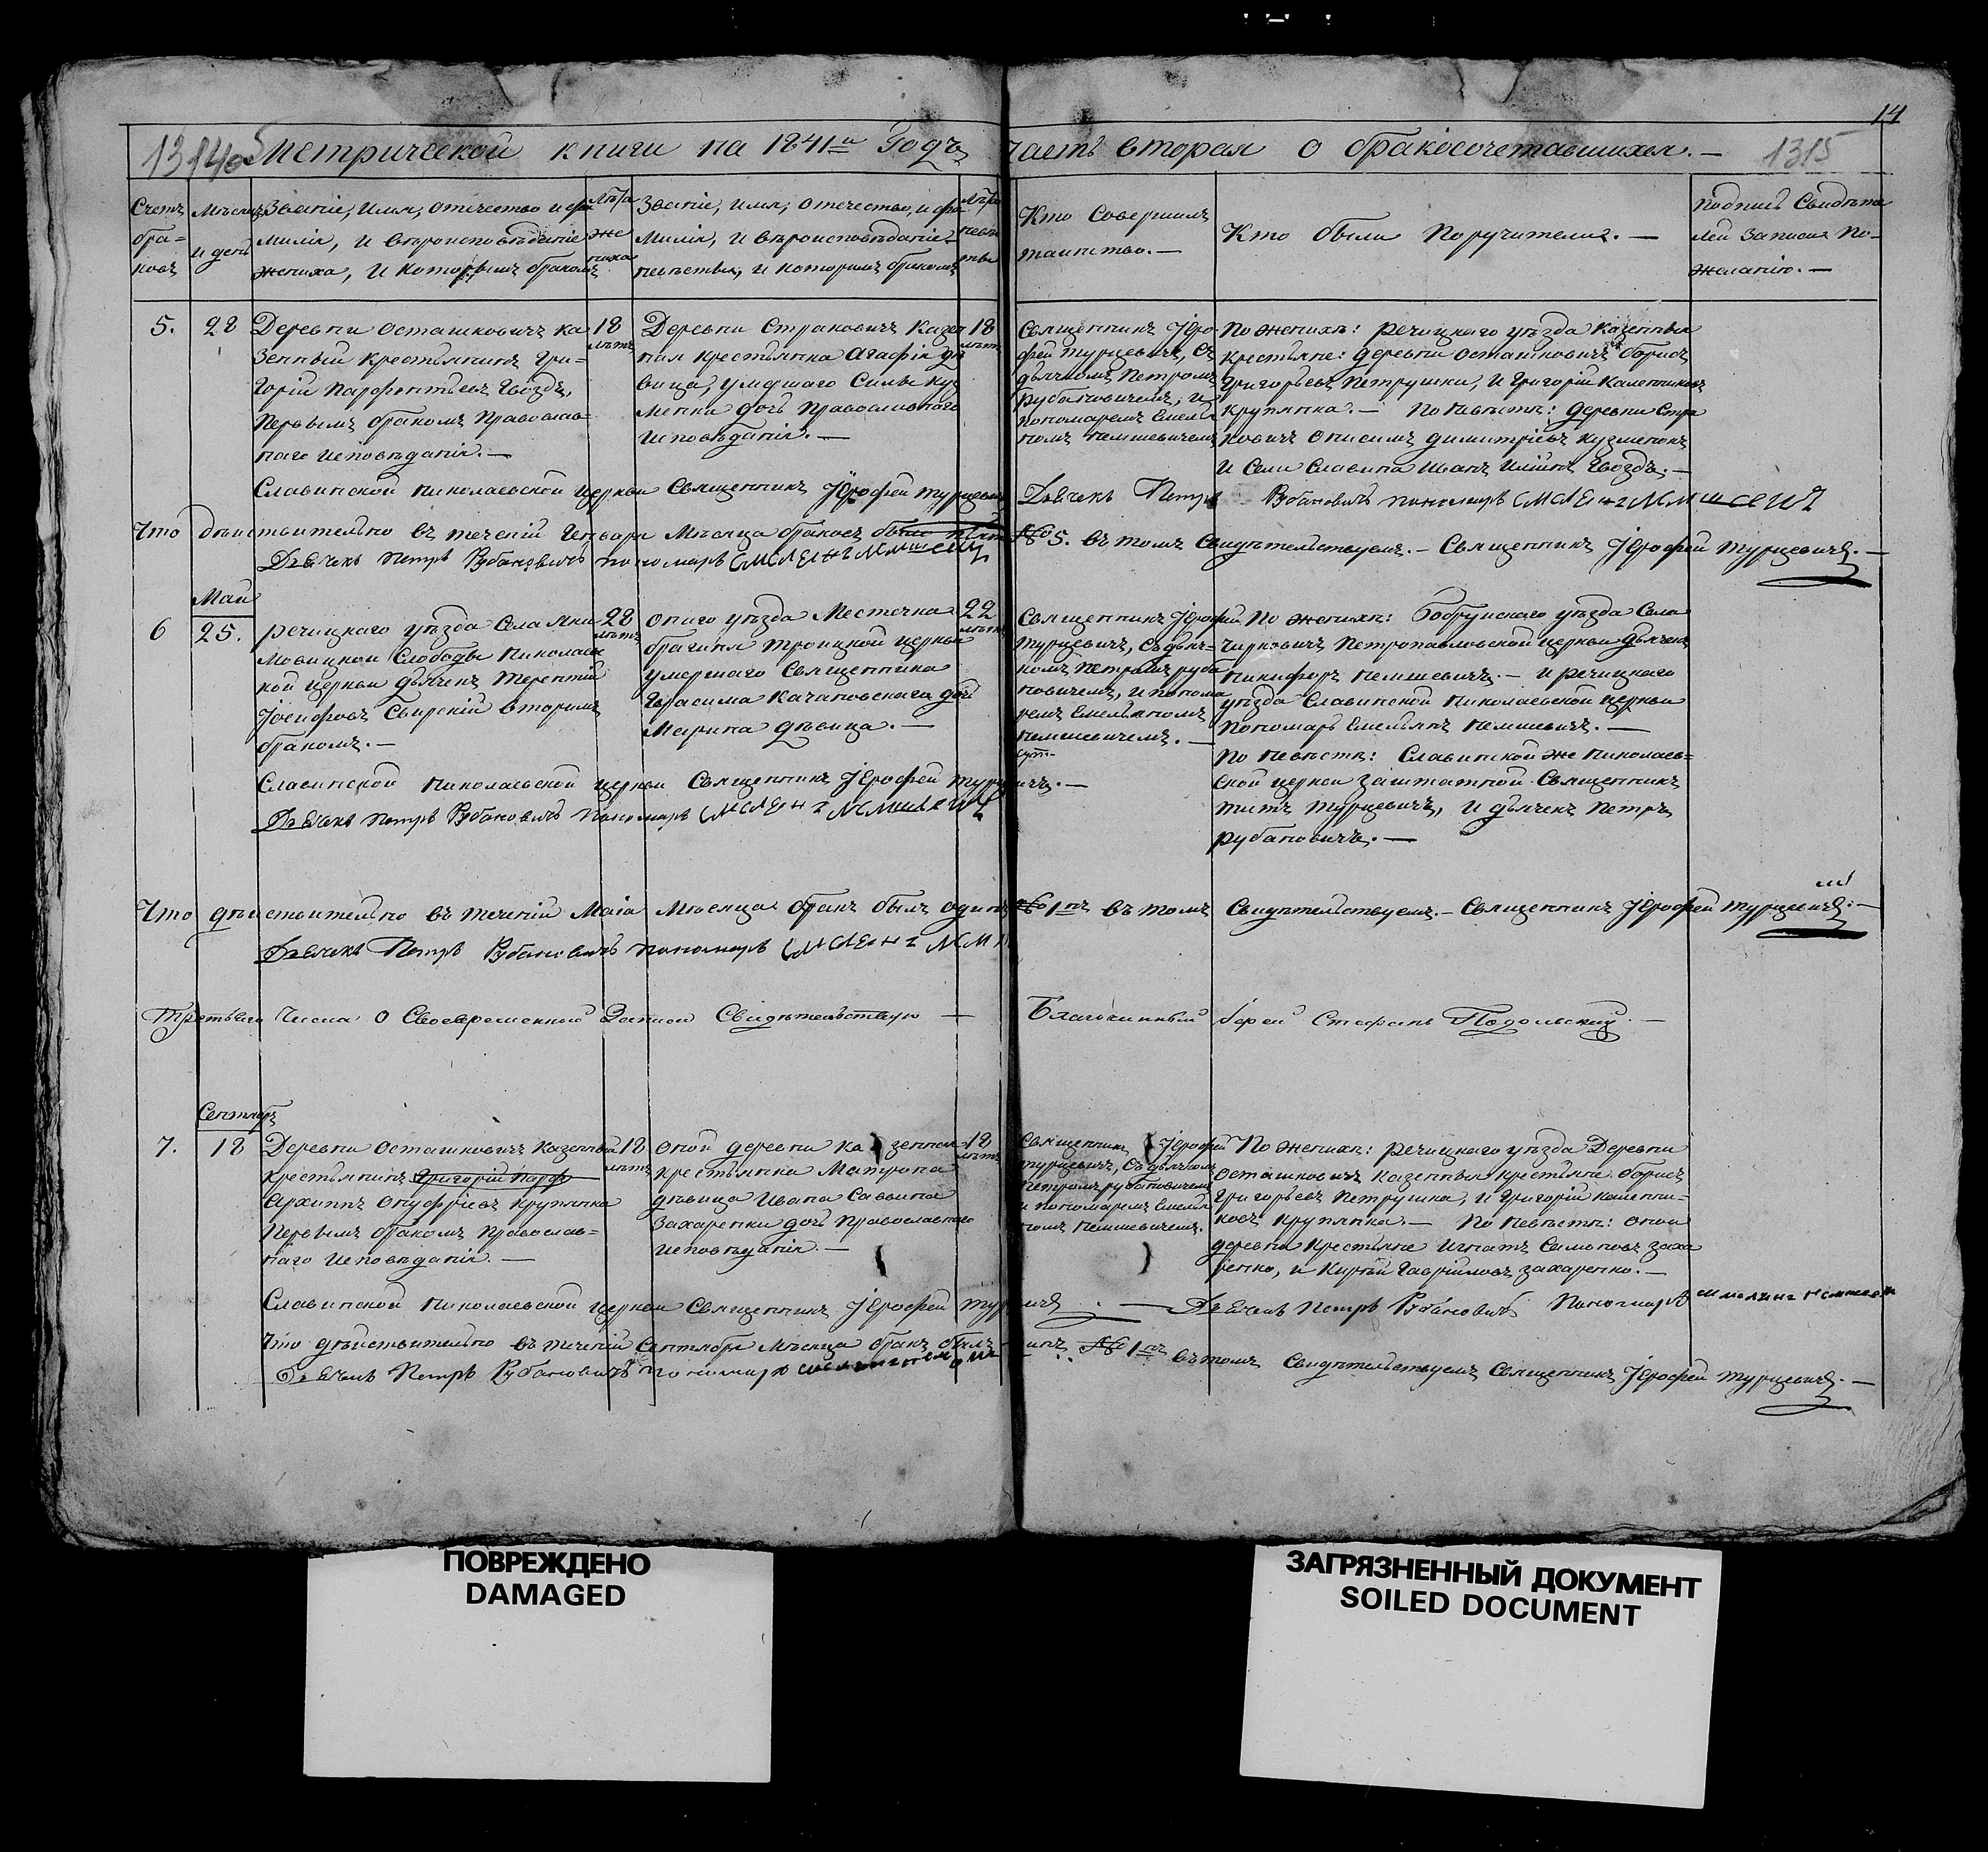 14
1314об Метрической книги на 1841й Годъ Часть вторая о бракосочетавшихся. — 1315
Счетъ
бра=
ковъ
Мѣсяцъ
и день
Званіе, имя, отечество и фа
милія, и вѣроисповѣданіе
жениха, и которымъ бракомъ
Лѣта
же
ниха
Званіе, имя, отечество, и фа
милія, и вѣроисповѣданіе
невѣсты, и которымъ бракомъ
Лѣта
невѣ
сты
Кто совершилъ
таинство. —
Кто были Поручители. —
Подпись Свидѣте
лей Записи По-
желанію. —
5.
28
Деревни Осташковичъ ка
зенный крестьянинъ Гри=
горій Парфентьевъ Гвоздь,
Первымъ бракомъ Православ=
наго исповѣданія. —
18
лѣтъ
Деревни Страковичъ казен
ная крестьянка Агафія дѣ
вица, умершаго Силы Куз
менка дочь Православнаго
исповѣданія. —
18
лѣтъ
Священникъ Іеро-
фей Турцевичъ, съ
дьячкомъ Петромъ
Рубановичемъ, и
пономаремъ Емелья
номъ Немшевичемъ
По женихѣ: Речицкаго уѣзда казенные
крестьяне: деревни Осташковичъ Борисъ
Григорьевъ Петрушка, и Григорій Калениковъ
Крупянка. — По невѣстѣ: деревни Стра
ковичъ Онисимъ Димитріевъ Кузменокъ
и Села Славина Иванъ Ильинъ Гвоздь. —
Славинской Николаевской церкви Священникъ Іерофей Турцевичъ Дьячекъ Петръ Рубановичъ пономарь Емелянъ Немшевичъ
Что дѣйствительно въ теченіи Генваря Мѣсяца браковъ было пять № 5. въ томъ Свидѣтельствуемъ. — Священникъ Іерофей Турцевичъ. —
Дьячекъ Петръ Рубановичъ пономарь Емелянъ Немшевичъ
Май
6
25.
Речицкаго уѣзда Села Яки
мовицкой Слободы Николаев
кой церкви дьячекъ Терентій
Іосифовъ Свирскій вторымъ
бракомъ. —
28
лѣтъ
Онаго уѣзда Местечка
Брагиня Троицкой церкви
умершаго Священника
Герасима Качановскаго дочь
Марина дѣвица. —
22
лѣтъ
Священникъ Іерофей
Турцевичъ, съ дьяч=
комъ Петромъ Руба
новичемъ, и понома
ремъ Емельяномъ
Немшевичемъ. —
По женихѣ: Бобруйскаго уѣзда Села
Чирковичъ Петропавловской церкви дьячекъ
Никифоръ Немшевичъ. — и Речицкаго
уѣзда Славинской Николаевской церкви
Пономарь Емельянъ Немшевичъ. —
По невѣстѣ: Славинской же Николаев=
ской церкви заштатной Священникъ
Титъ Турцевичъ, и дьячекъ Петръ
Рубановичъ. —
Славинской Николаевской церкви Священникъ Іерофей Турцевичъ. —
Дьячекъ Петръ Рубановичъ Пономарь Емелянъ Немшевичъ
Что дѣйствительно въ теченіи Маія Мѣсяца бракъ былъ одинъ № 1нъ въ томъ Свидѣтельствуемъ. — Священникъ Іерофей Турцевичъ. —
Дьячекъ Петръ Рубановичъ пономарь Емелянъ
Третьяго Числа о Своевременной Записи Свидѣтельствую — Благочинный Іерей Стефанъ Подольскій. —
Сентябрь
7.
18
Деревни Осташковичъ казенный
крестьянинъ Григорій Парф
Архипъ Онуфріевъ Крупянка
Первымъ бракомъ Православ=
наго исповѣданія. —
18
лѣтъ
Оной деревни казенная
крестьянка Матрона
дѣвица Ивана Саввина
Захаренки дочь Православнаго
исповѣданія. —
18
лѣтъ
Священникъ Іерофей
Турцевичъ, съ дьячкомъ
Петромъ Рубановичемъ
и пономаремъ Емелья
номъ Немшевичемъ.
По женихѣ: Речицкаго уѣзда Деревни
Осташковичъ казенные крестьяне Борисъ
Григорьевъ Петрушка, и Григорій Калени=
ковъ Крупянка. — По невѣстѣ: оной
деревни Крестьяне Игнатъ Самоновъ Заха
ренко, и Кирѣй Гавріиловъ Захаренко. —
Славинской Николаевской церкви Священникъ Іерофей Турцевичъ. — Дьячекъ Петръ Рубановичъ Пономарь Емелянъ Немшевичъ
Что дѣйствительно въ теченіи Сентября Мѣсяца бракъ былъ одинъ № 1нъ въ томъ Свидѣтельствуемъ Священникъ Іерофей Турцевичъ. —
Дьячекъ Петръ Рубановичъ Пономарь
ПОВРЕЖДЕНО
DAMAGED
ЗАГРЯЗНЕННЫЙ ДОКУМЕНТ
SOILED DOCUMENT